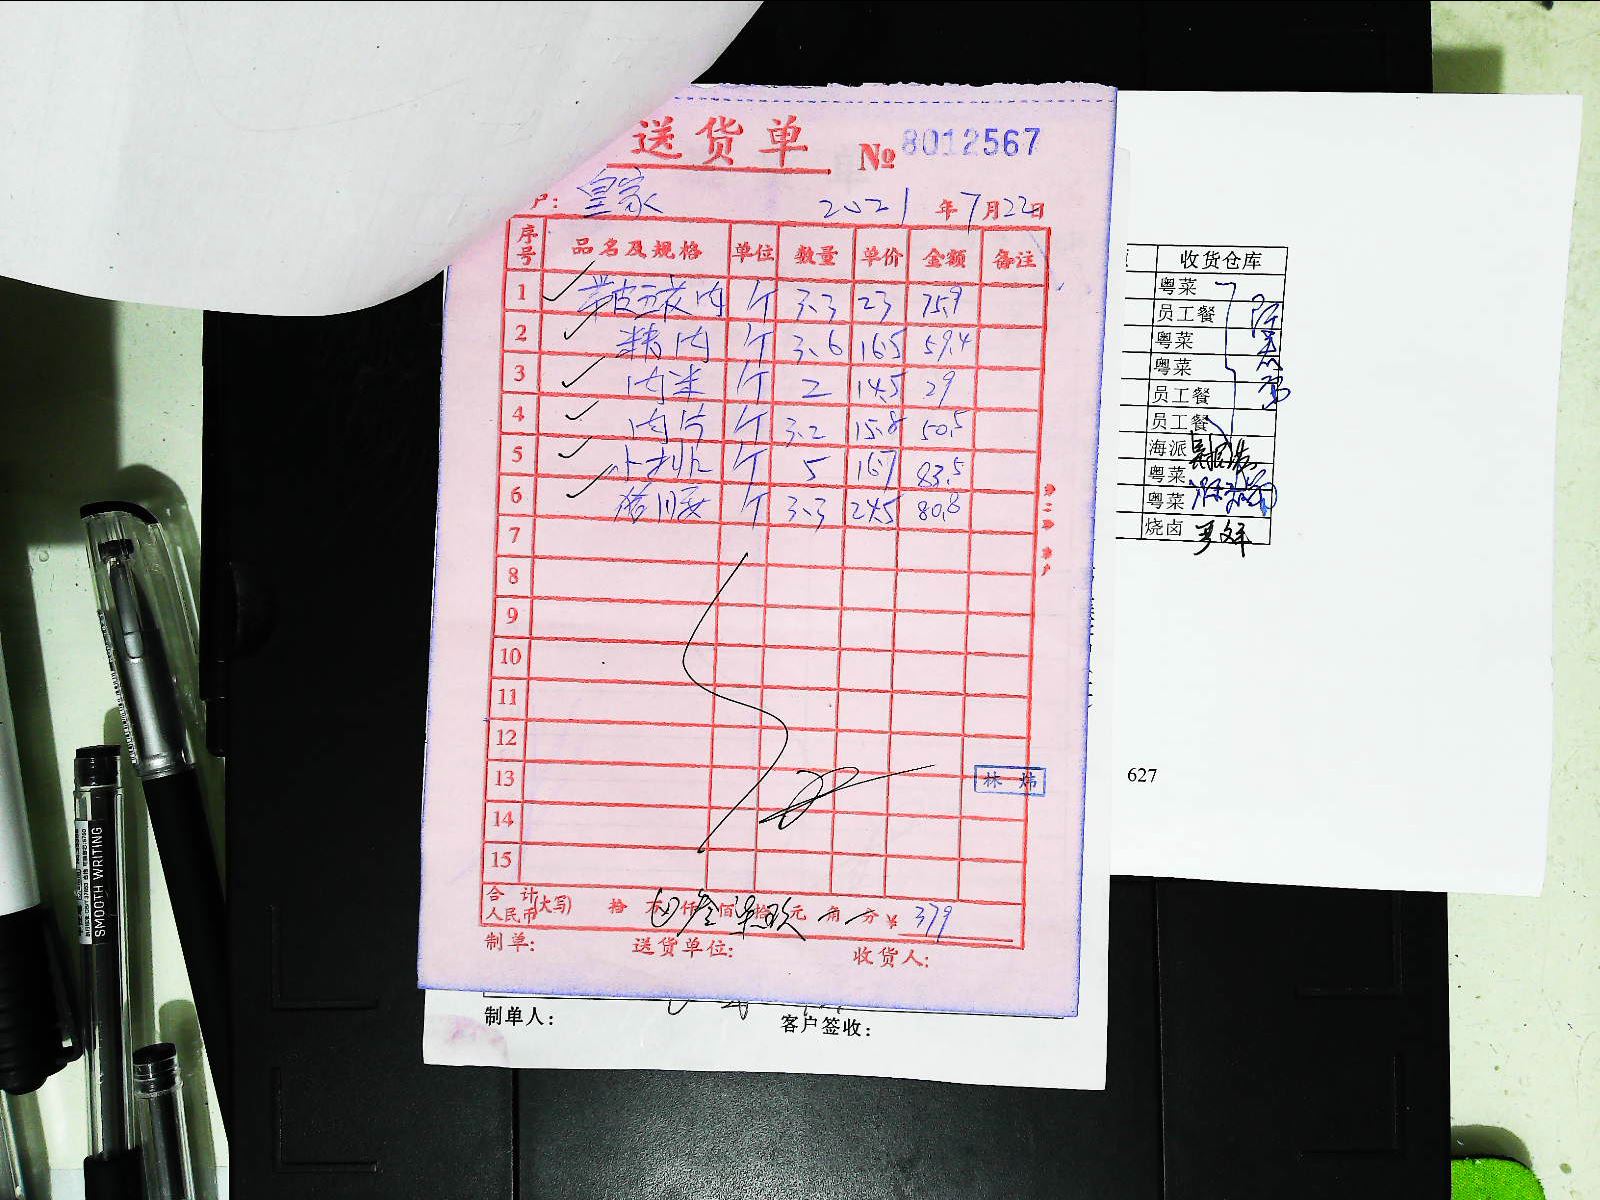 送货单 № 8012567
户: 皇家 2021年7月22日
序号 品名及规格 单位 数量 单价 金额 备注
1 带皮五花肉 斤 3.3 23 75.9
2 精肉 斤 3.6 16.5 59.4
3 肉米 斤 2 14.5 29
4 肉片 斤 3.2 15.8 50.5
5 小排 斤 5 16.7 83.5
6 斤 3.3 24.5 80.8
7
8
9
10
11
12
13 林炜
14
15
合计人民币(大写) 拾 万 仟 叁佰 柒拾 玖元 角 分 ¥ 379
制单: 送货单位: 收货人:
制单人: 客户签收:
收货仓库
粤菜
员工餐
粤菜
粤菜
员工餐
员工餐
海派
粤菜
粤菜
烧卤
627
SMOOTH WRITING